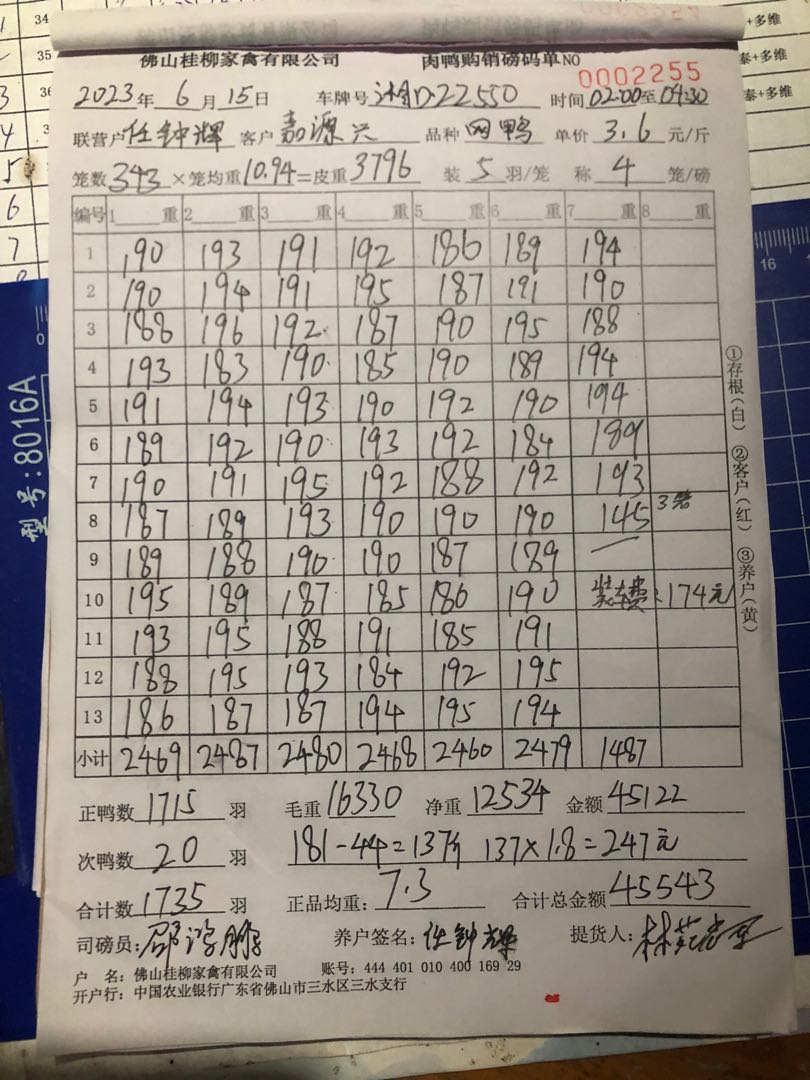 佛山桂柳家禽有限公司 肉鸭购销磅码单NO 0002255
2023年 6 月 15 日 车牌号 湘D·22550 时间 02:00 至 04:30
联营户 任钟辉 客户 嘉源兴 品种 网鸭 单价 3.6 元/斤
笼数 343 ×笼均重 10.94 =皮重 3796 装 5 羽/笼 称 4 笼/磅
编号 1 重 2 重 3 重 4 重 5 重 6 重 7 重 8 重
1 190 193 191 192 186 189 194
2 190 194 191 195 187 191 190
3 188 196 192 187 190 195 188
4 193 183 190 185 190 189 194
5 191 194 193 190 192 190 194
6 189 192 190 193 192 184 189
7 190 191 195 192 188 192 193
8 187 189 193 190 190 190 145 3笼
9 189 188 190 190 187 189 —
10 195 189 187 185 186 190 装车费: 174元
11 193 195 188 191 185 191
12 188 195 193 184 192 195
13 186 187 187 194 195 194
小计 2469 2487 2480 2468 2460 2479 1487
正鸭数 1715 羽 毛重 16330 净重 12534 金额 45122
次鸭数 20 羽 181-44=137斤 137×1.8=247元
合计数 1735 羽 正品均重: 7.3 合计总金额 45543
司磅员: 养户签名: 任钟辉 提货人:
户 名: 佛山桂柳家禽有限公司 账号: 444 401 010 400 169 29
开户行: 中国农业银行广东省佛山市三水区三水支行
①存根(白) ②客户(红) ③养户(黄)
型号: 8016A
泰+多维
泰+多维
16 17
34
35
36
5
6
7